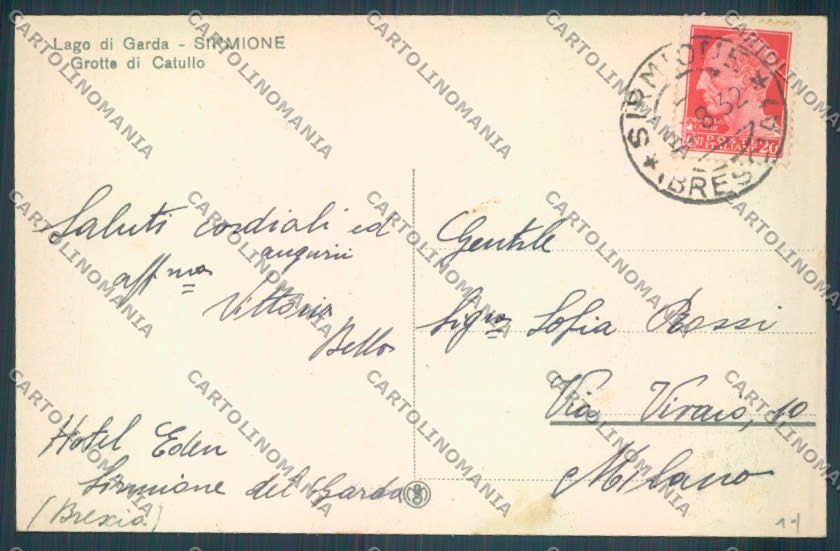 Lago di Garda - SIRMIONE
Grotte di Catullo
SIRMIONE
8.32
(BRESCIA)
POSTE
ITALIANE
CENT 20
Saluti cordiali ed
auguri
aff.ma
Vittoria
Bello
Hotel Eden
Sirmione del Garda
(Brescia)
Gentile
Sig.ra Sofia Rossi
Via Vivaio, 10
Milano
CARTOLINOMANIA